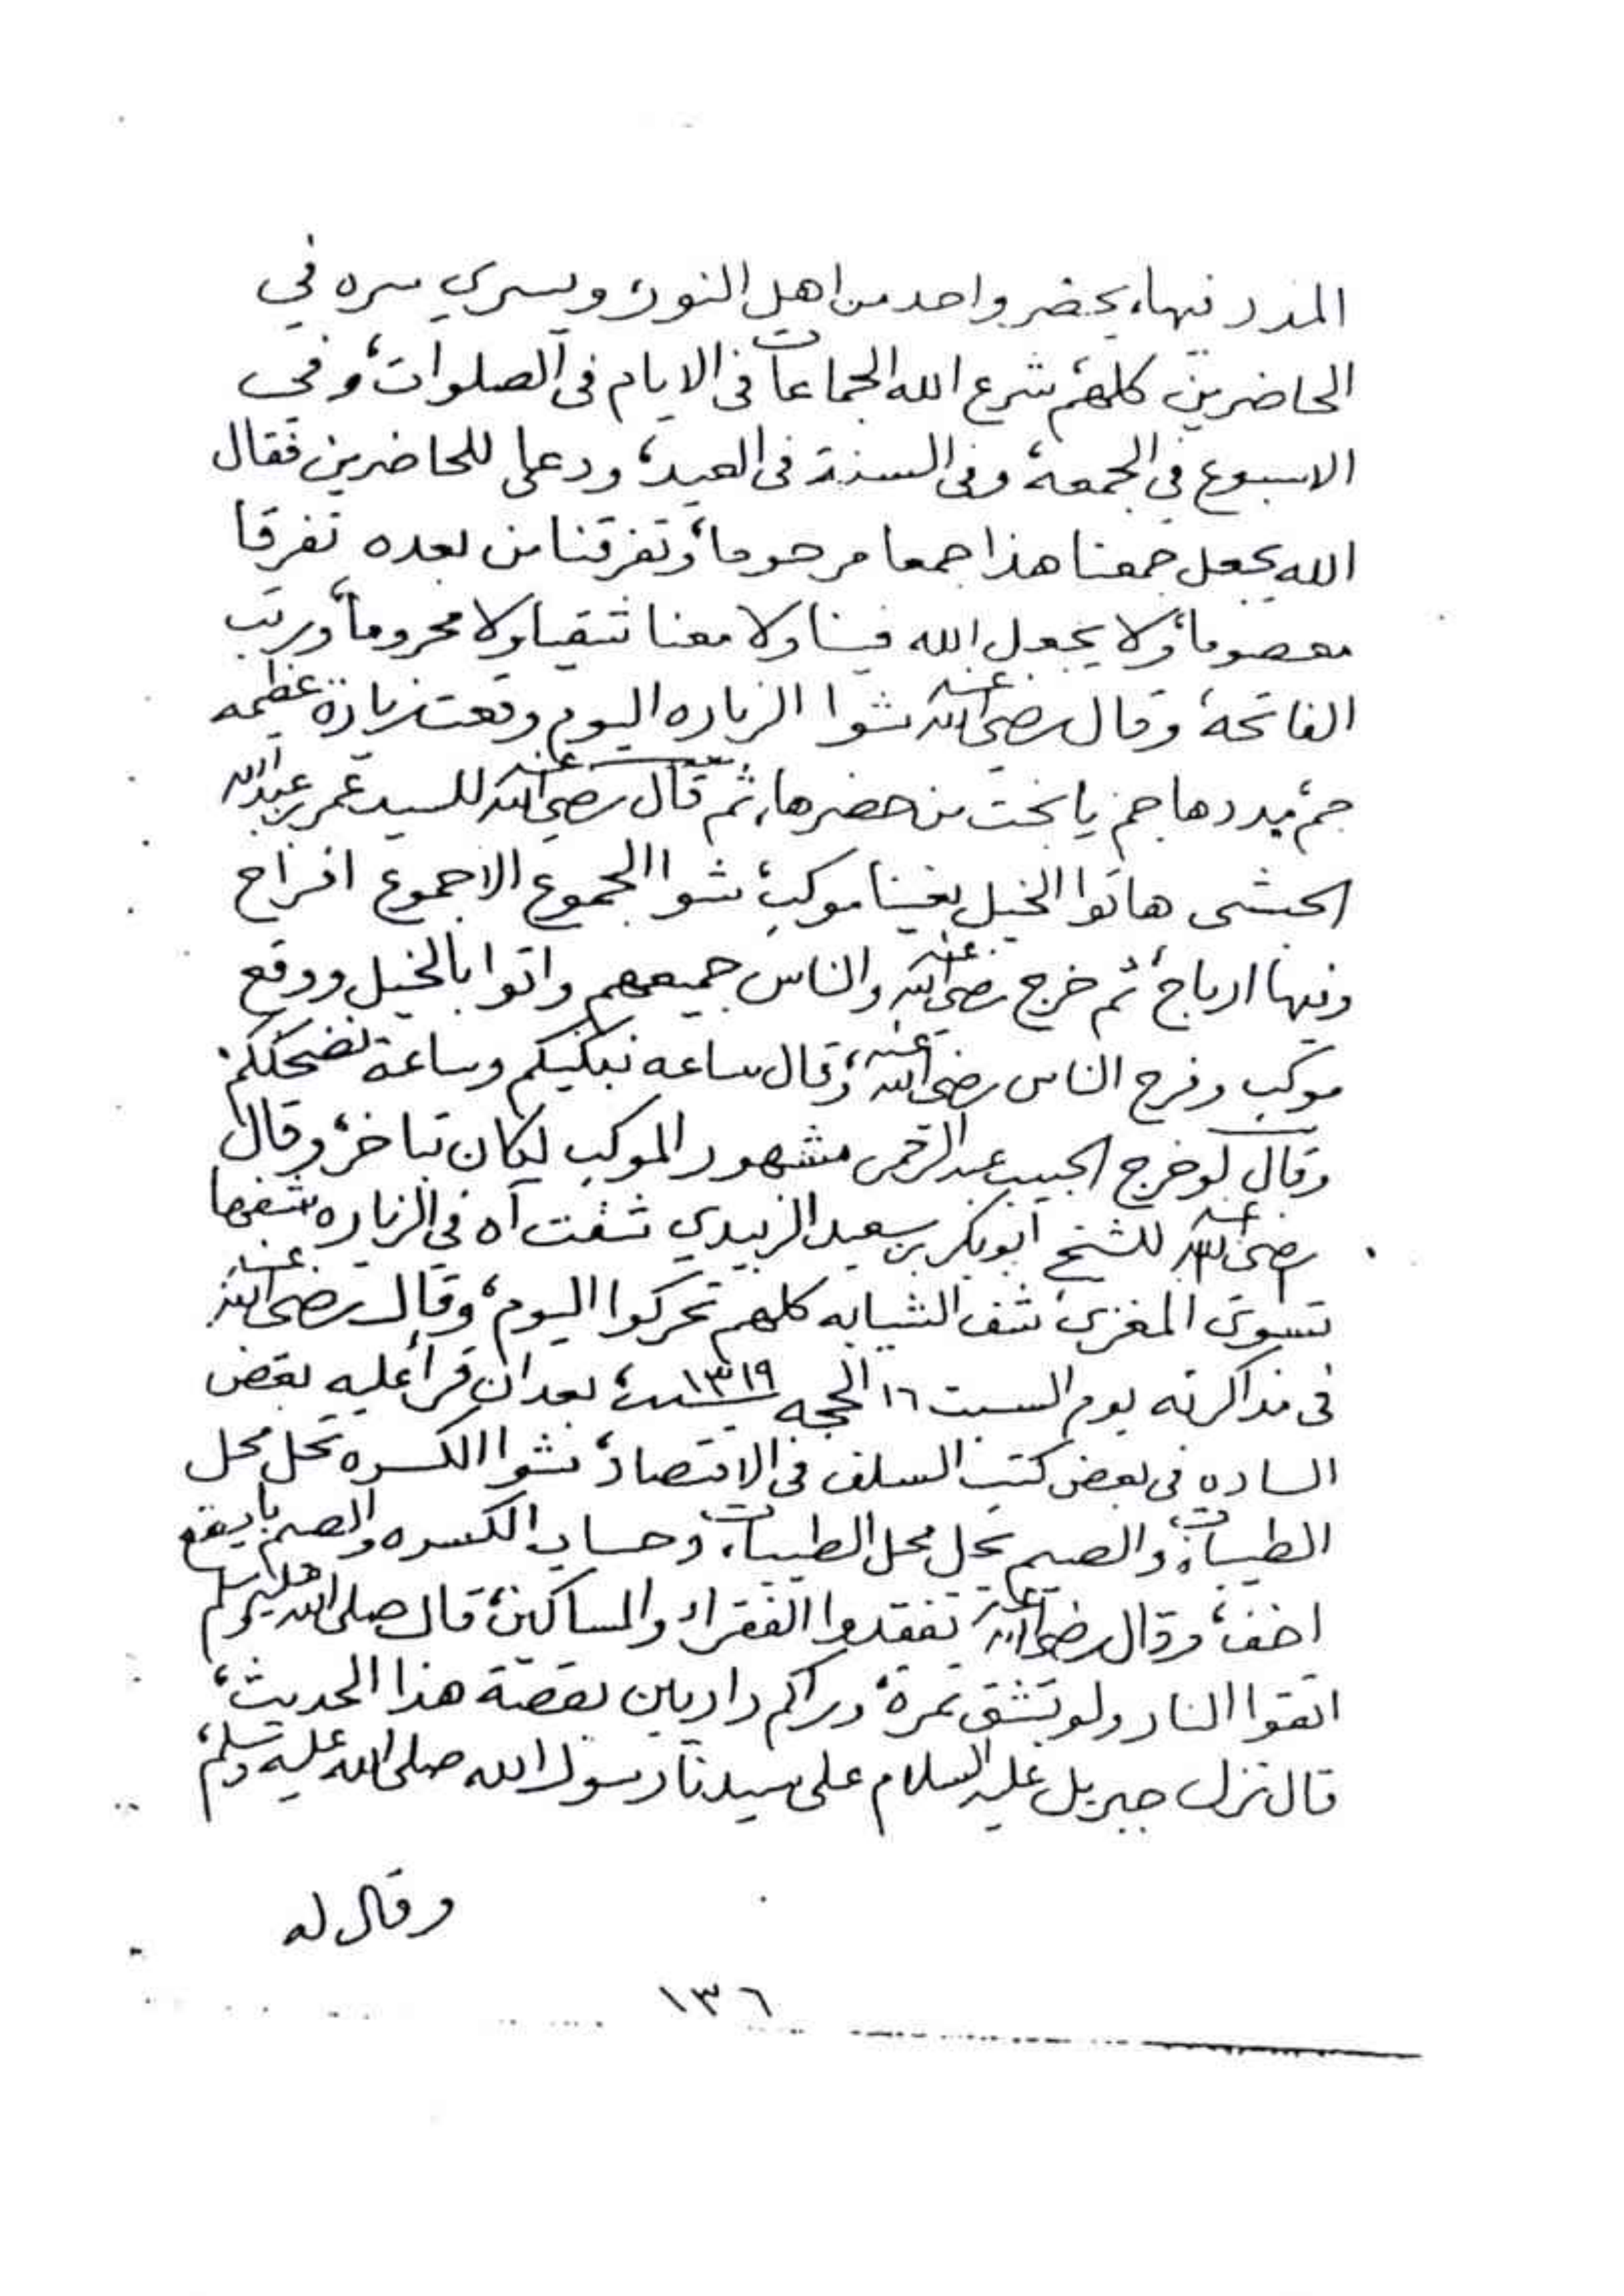 المدد فيها، يحضر واحد من اهل النور، ويسري سره في
الحاضرين كلهم، شرع الله الجماعات في الايام في الصلوات، وفي
الاسبوع في الجمعة، وفي السنة في العيد، ودعى للحاضرين فقال
الله يجعل جمعنا هذا جمعا مرحوما، وتفرقنا من بعده تفرقا
معصوما، ولا يجعل الله فينا ولا معنا شقيا ولا محروما، ورتب
الفاتحة، وقال رضي الله عنه شوا الزياره اليوم وقعت زيارة عظيمه
جم، مددها جم يا بخت من حضرها، ثم قال رضي الله عنه للسيد عمر بن عبدالله
الحبشى هاتوا الخيل بغينا موكب، شوا الجموع الا جموع افراح
وفيها ارباح، ثم خرج رضي الله عنه والناس جميعهم واتوا بالخيل ووقع
موكب وفرح الناس رضي الله عنه، وقال ساعه نبكيكم وساعة نضحككم
وقال لو خرج الحبيب عبدالرحمن مشهور الموكب لكان تباخر، وقال
رضي الله عنه للشيخ ابوبكر بن سعيد الزبيدي شفت آه في الزياره شفها
تسوى المغزى شف الشيابه كلهم تحركوا اليوم، وقال رضي الله عنه
في مذاكرته يوم السبت ١٦ الحجه سنة ١٣١٩، بعد ان قرأ عليه بعض
الساده في بعض كتب السلف في الاقتصاد، شوا الكسره تحل محل
الطيبات، والصيم تحل محل الطيبات، وحساب الكسره والصيم بايقع
اخف، وقال رضي الله عنه تفقدوا الفقراء والمساكين، قال صلى الله عليه وسلم
اتقوا النار ولو بشق تمرة، وراكم داريين بقصة هذا الحديث،
قال نزل جبريل عليه السلام على سيدنا رسول الله صلى الله عليه وسلم،
وقال له
١٣٦